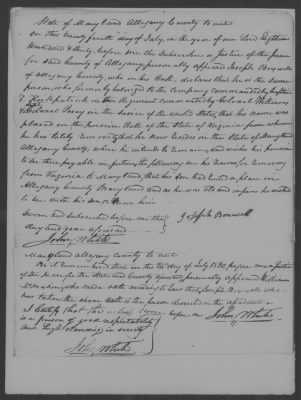 State of Maryland Allegany County to wit
On this Twenty fourth day of July, in the year of our Lord Eighteen
Hundred & thirty, before me the Subscriber a Justice of the peace
for said County of Allegany, personally appeared Joseph Boswell
of Allegany County, who on his Oath, declares that he is the same
person, who formerly belonged to the Company commanded by Captain
in the Regiment commanded by Colonel Williams
in the service of the United States, that his name was
placed on the pension Roll of the State of Virginia from whence
he has lately removed, that he now resides in the State of Maryland
Allegany County, where he intends to remain, and wishes his pension
to be there payable in future, the following are his reasons for removing
from Virginia to Maryland, that his son had a place in
Allegany County Maryland and as he was old and infirm he wished
to live with his son
Sworn and subscribed before me this
day and year aforesaid
Joseph Boswell
John White
Maryland Allegany County to wit
Be it remembered that on the 24 day of July 1830, before me a Justice
of the peace for the State and County aforesaid, personally appeared William
who made Oath according to Law that Joseph Boswell who
has taken the above Oath is the person described in the affidavit
I Certify that the before me John White
is a person of good respectability
and high standing in society
John White